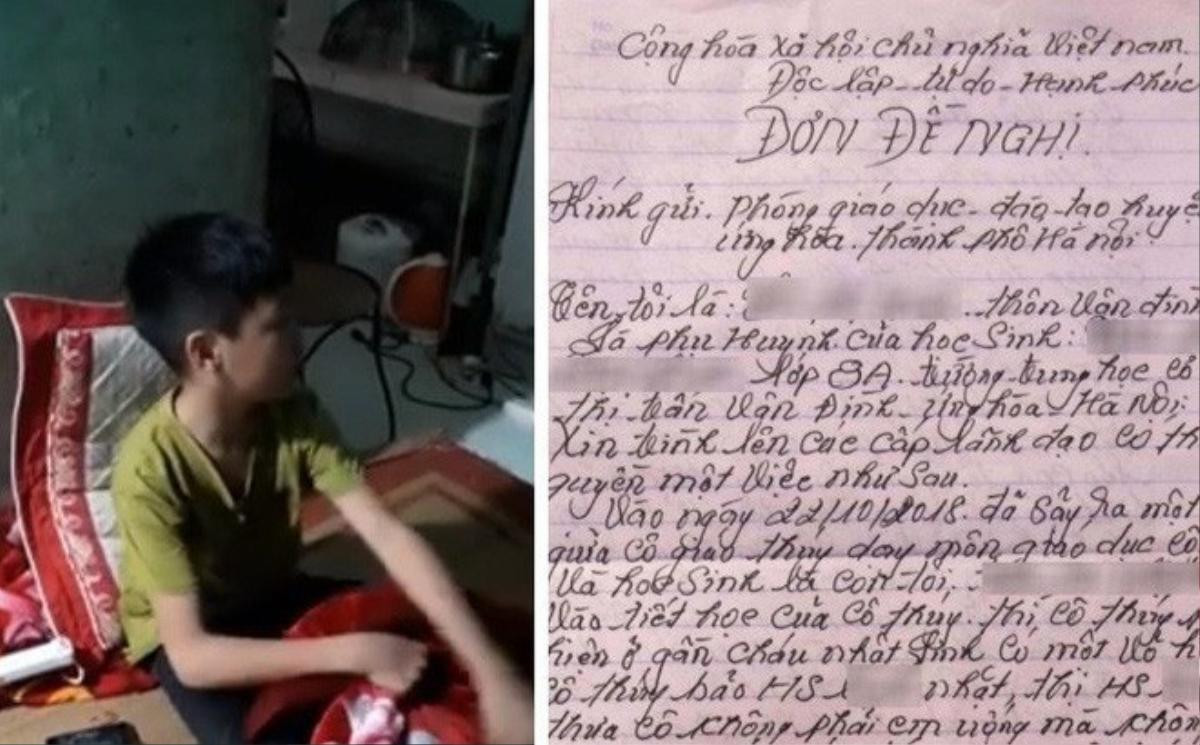 Cộng hóa xã hội chủ nghĩa Việt nam.
Độc lập - tự do - Hạnh phúc
ĐƠN ĐỀ NGHỊ.
Kính gửi. Phòng giáo dục - đào tạo huyệ
ứng hòa. thành phố Hà nội.
Tên tôi là: thôn Vân đìn
Là phụ Huynh của học Sinh:
lớp 8A. trường trung học cô
thị trấn Vân Đình - ứng hòa - Hà Nội
Xin trình lên các cấp lãnh đạo có th
quyền một việc như Sau.
Vào ngày 22/10/2018. đã Sảy ra một
giữa cô giáo thúy dạy môn giáo dục cô
Và học Sinh là con tôi,
Vào tiết học của cô thúy. thì cô thúy
hiện ở gần cháu nhất Sinh có một vỏ h
cô thúy bảo HS nhặt, thì HS
thưa cô không phải em uống mà khôn